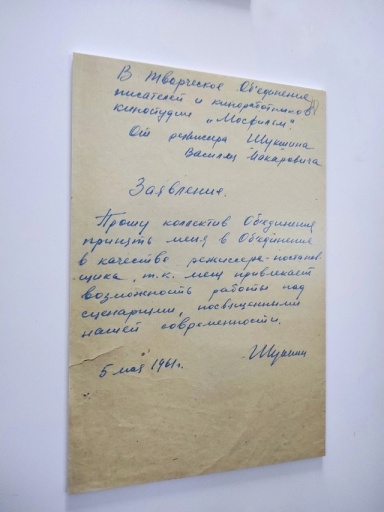 В творческое Объединение
писателей и киноработников
киностудии „Мосфильм".
От режиссера Шукшина
Василия Макаровича
Заявление.
Прошу коллектив Объединения
принять меня в Объединение
в качестве режиссера-постанов-
щика, т.к. меня привлекает
возможность работы над
сценариями, посвященными
нашей современности.
Шукшин
5 мая 1961г.